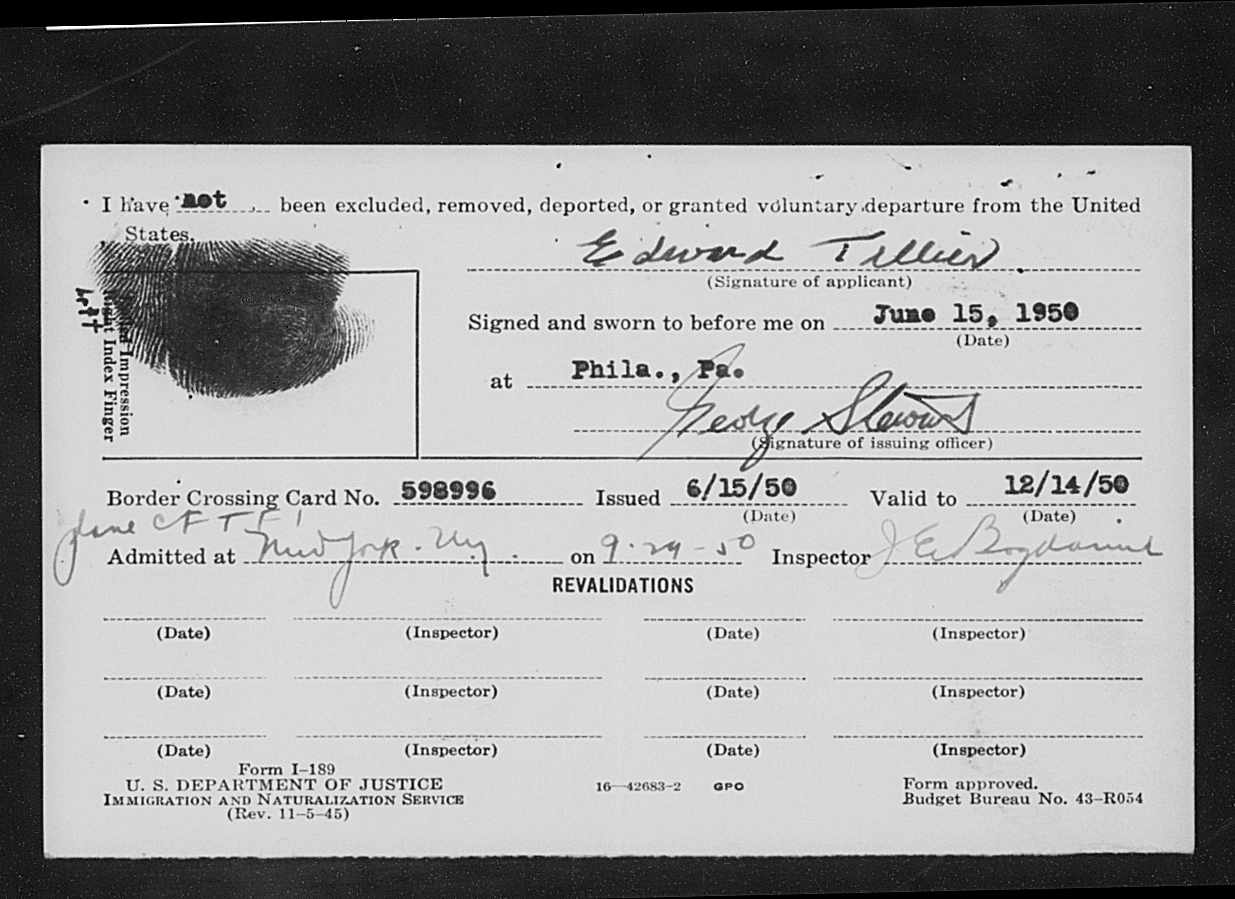 I have not been excluded, removed, deported, or granted voluntary departure from the United
States.
Edward Tellier
(Signature of applicant)
Left
Impression
Index Finger
Signed and sworn to before me on June 15, 1950
(Date)
at Phila., Pa.
George
(Signature of issuing officer)
Border Crossing Card No. 598996 Issued 6/15/50 Valid to 12/14/50
(Date) (Date)
plane CF TF
Admitted at New York. Ny on 9-29-50 Inspector J E
REVALIDATIONS
(Date) (Inspector) (Date) (Inspector)
(Date) (Inspector) (Date) (Inspector)
(Date) (Inspector) (Date) (Inspector)
Form I-189
U. S. DEPARTMENT OF JUSTICE 16—42683-2 GPO Form approved.
IMMIGRATION AND NATURALIZATION SERVICE Budget Bureau No. 43-R054
(Rev. 11-5-45)